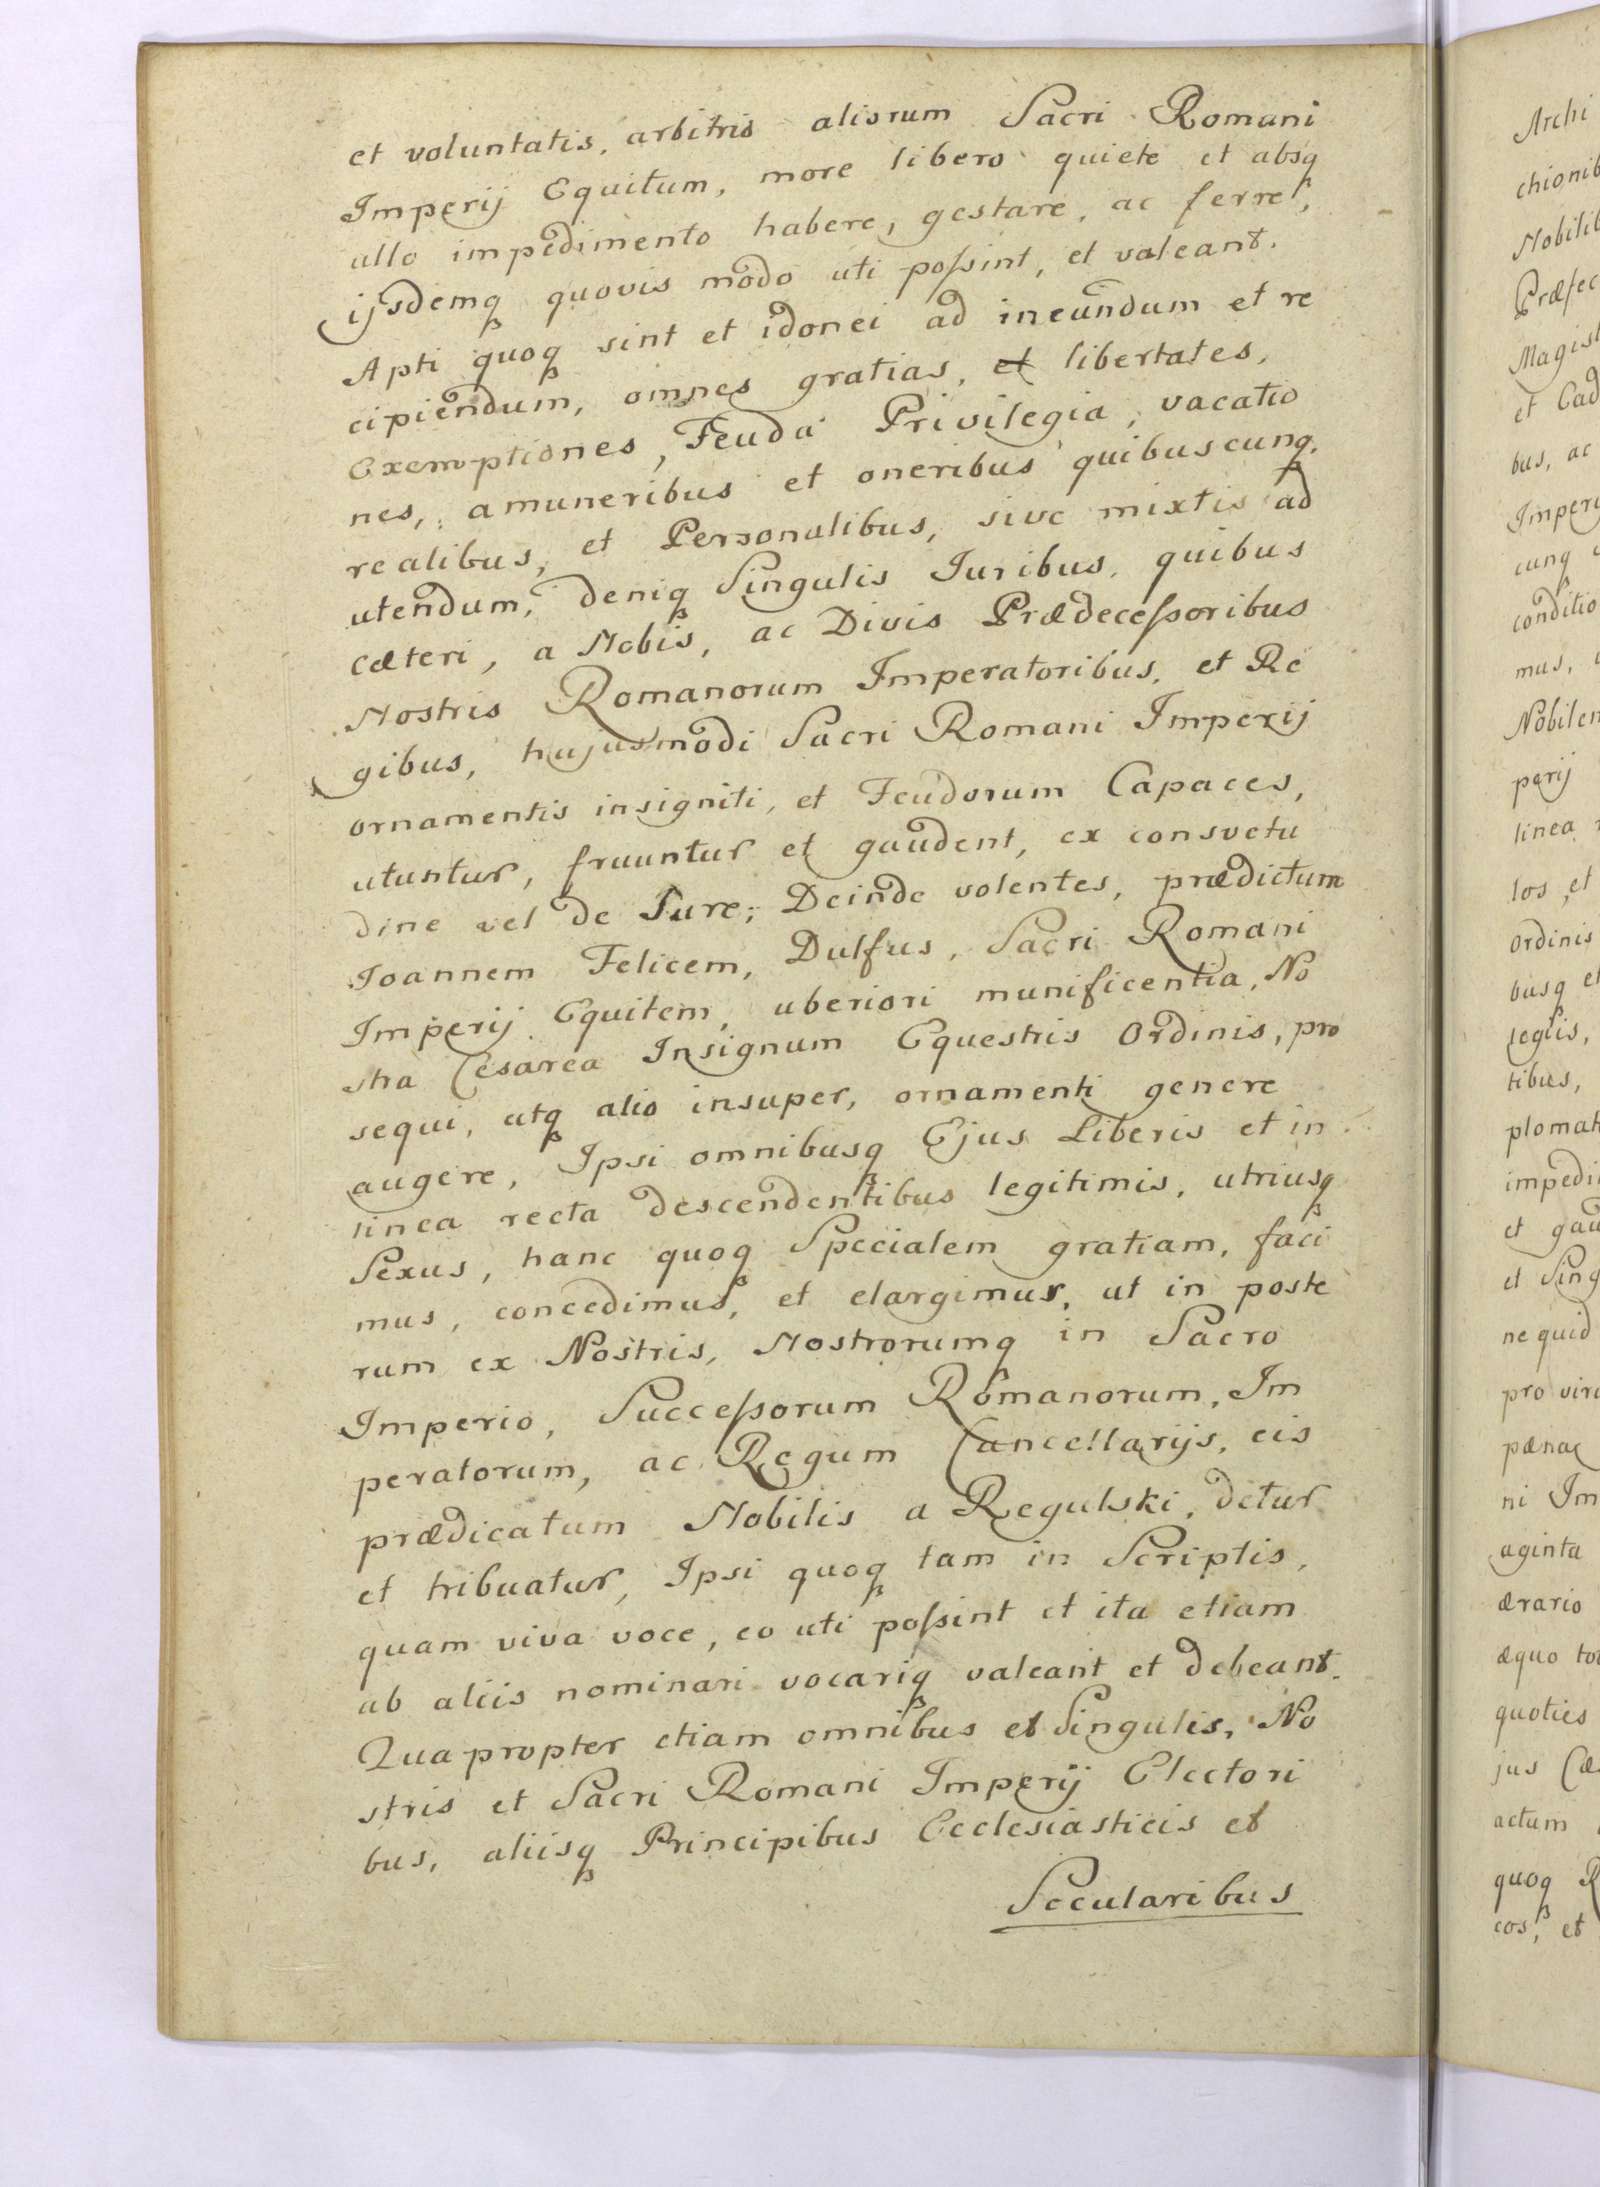 et voluntatis, arbitris aliorum Sacri Romani
Imperij Equitum, more libero quiete et absq
ullo impedimento habere, gestare, ac ferre,
ijsdemq quovis modo uti possint, et valeant.
Apti quoq sint et idonei ad ineundum et re
cipiendum, omnes gratias, et libertates,
Exemptiones, Feuda Privilegia, vacatio
nes, a muneribus et oneribus quibuscunq,
realibus, et Personalibus, sive mixtis ad
utendum, deniq Singulis Iuribus, quibus
cæteri, a Nobis, ac Divis Prædecessoribus
Nostris Romanorum Imperatoribus, et Re
gibus, hujusmodi Sacri Romani Imperij
ornamentis insigniti, et Feudorum Capaces,
utuntur, fruuntur et gaudent, ex consvetu
dine vel de Iure; Deinde volentes, prædictum
Ioannem Felicem, Dulfus, Sacri Romani
Imperij Equitem, uberiori munificentia, No
stra Cesarea Insignum Equestris Ordinis, pro
sequi, utq alio insuper, ornamenti genere
augere, Ipsi omnibusq Ejus Liberis et in
linea recta descendentibus legitimis, utriusq
Sexus, hanc quoq Specialem gratiam, faci
mus, concedimus, et elargimur, ut in poste
rum ex Nostris, Nostrorumq in Sacro
Imperio, Successorum Romanorum, Im
peratorum, ac Regum Cancellarijs, eis
prædicatum Nobilis a Regulski, detur
et tribuatur, Ipsi quoq tam in Scriptis,
quam viva voce, eo uti possint et ita etiam
ab aliis nominari vocariq valeant et debeant.
Quapropter etiam omnibus et Singulis, No
stris et Sacri Romani Imperij Electori
bus, aliisq Principibus Ecclesiasticis et
Secularibus
Archi
chionib
Nobilib
Præfec
Magist
et Cad
bus, ac
Imperi
cunq
conditio
mus,
Nobilem
perij
linea
los, et
Ordinis
busq et
legiis,
tibus,
plomat
impedi
et gau
et Sing
ne quid
pro viri
pænae
ni Im
aginta
ærario
æquo to
quoties
jus Cæ
actum
quoq R
cos, et